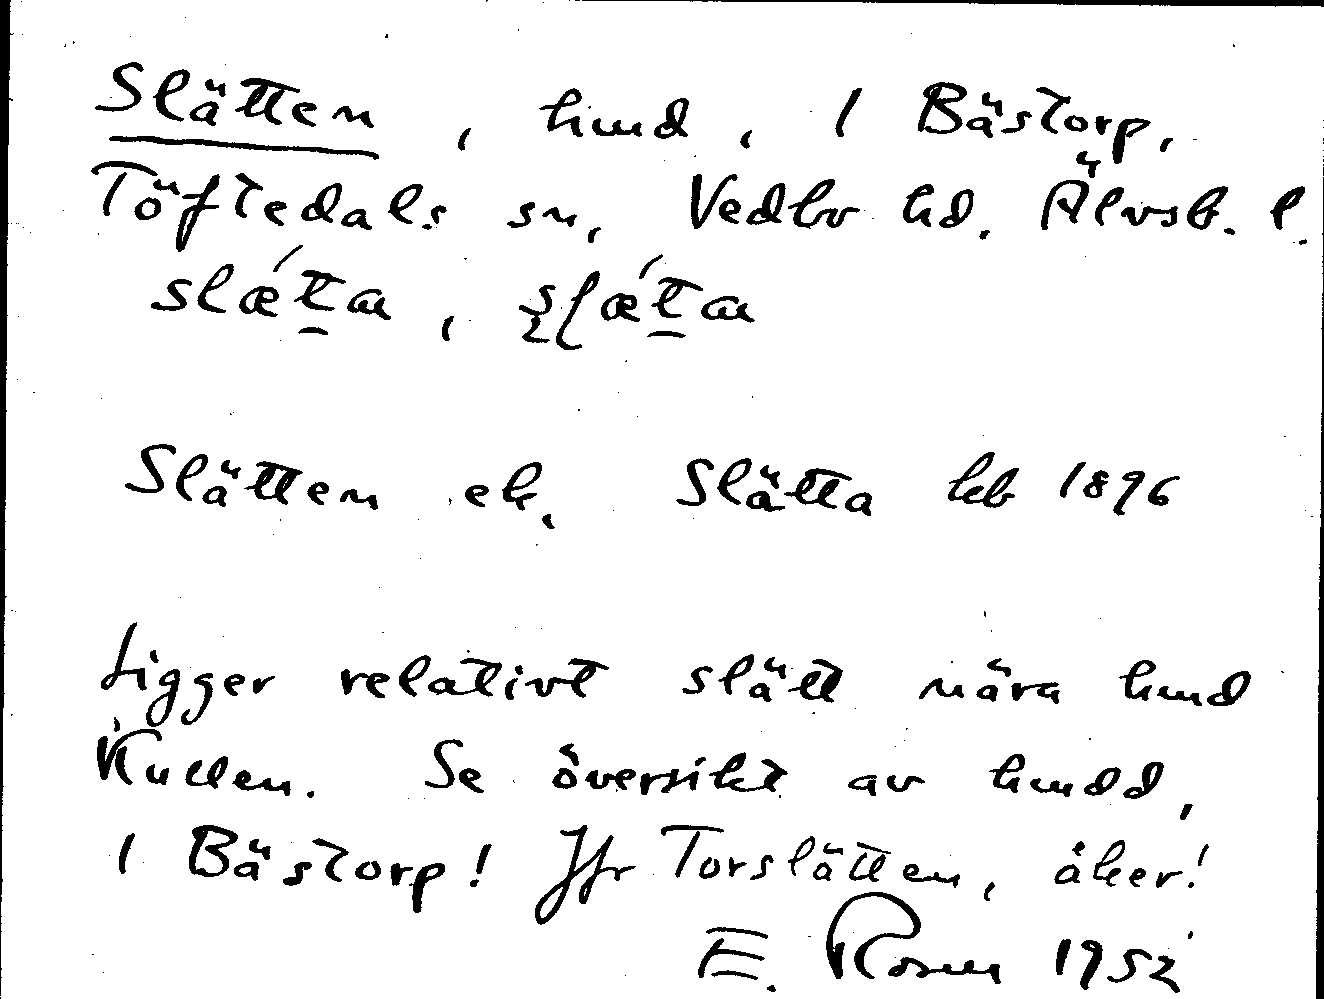 Slätten, hmd, 1 Bästorp,
Töftedals sn, Vedbo hd. Älvsb. l.
slǽt̲a
Slätten ek. Slätta kb 1896
Ligger relativt slätt nära hmd
Kullen. Se översikt av hmdd,
1 Bästorp! Jfr Torslätten, åker!
E. Rosell 1952